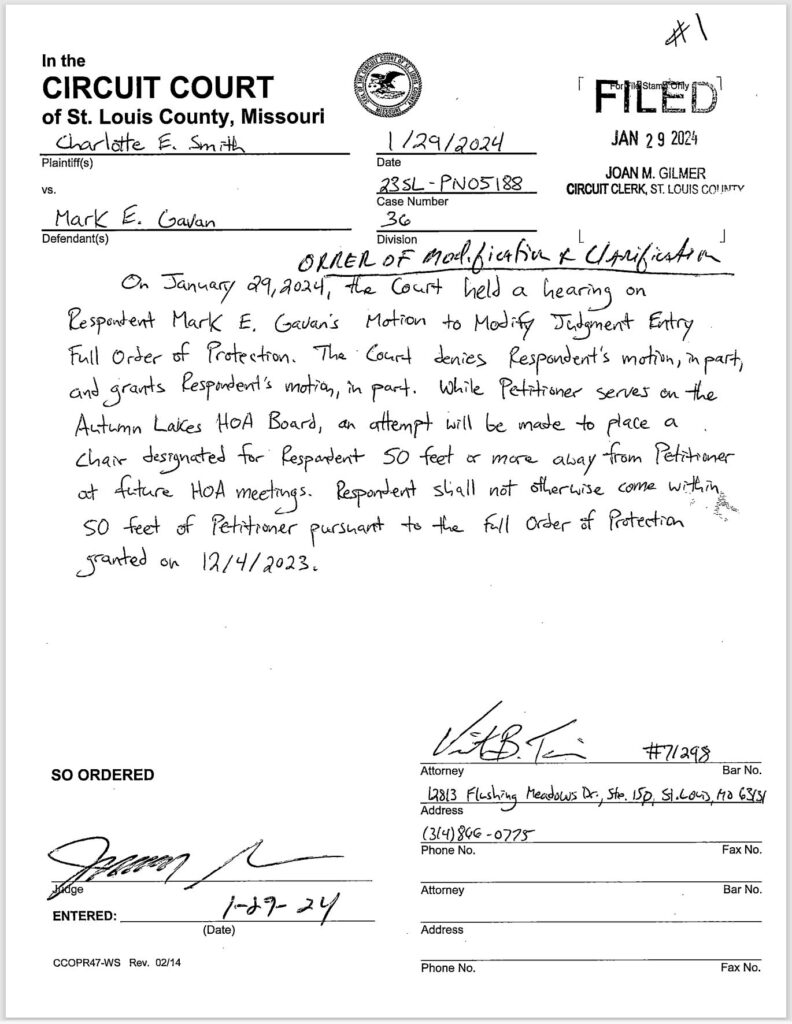 #1
In the
CIRCUIT COURT
of St. Louis County, Missouri
Charlotte E. Smith
Plaintiff(s)
vs.
Mark E. Gavan
Defendant(s)
1/29/2024
Date
23SL-PN05188
Case Number
36
Division
For File Stamp Only
FILED
JAN 29 2024
JOAN M. GILMER
CIRCUIT CLERK, ST. LOUIS COUNTY
ORDER OF Modification & Clarification
On January 29, 2024, the Court held a hearing on
Respondent Mark E. Gavan's Motion to Modify Judgment Entry
Full Order of Protection. The Court denies Respondent's motion, in part,
and grants Respondent's motion, in part. While Petitioner serves on the
Autumn Lakes HOA Board, an attempt will be made to place a
Chair designated for Respondent 50 feet or more away from Petitioner
at future HOA meetings. Respondent shall not otherwise come within
50 feet of Petitioner pursuant to the Full Order of Protection
granted on 12/4/2023.
SO ORDERED
Judge
ENTERED: 1-29-24
(Date)
CCOPR47-WS Rev. 02/14
#71298
Attorney Bar No.
12813 Flushing Meadows Dr., Ste. 150, St. Louis, MO 63131
Address
(314) 866-0775
Phone No. Fax No.
Attorney Bar No.
Address
Phone No. Fax No.